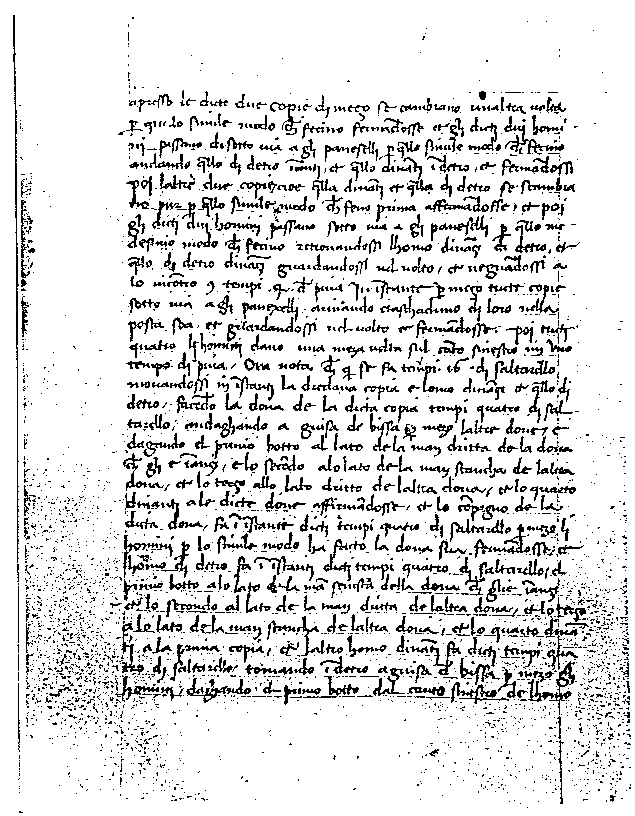 apresso le dicte due copie di mezo se cambiano un altra volta
p quello simile modo ch fecino fermandosse et gli dicti dui homi
ni passano di sotto via a gli paneselli p q̃llo simile modo ch fecino
andando q̃llo di detro ĩanti, et q̃llo dinãti ĩ detro, et fermãdossi
poi laltre due copie, cioe q̃lla dinãti et q̃lla di detro se scambia
no pur p q̃llo simile modo ch feno prima affermãdosse, et poi
gli dicti dui homini passano sotto via a gli paneselli p q̃llo me
desimo modo ch fecino retornandossi lhomo dinãzi di detro, et
q̃llo di detro dinãzi guardandossi nel volto, et
lo tempi di piva In stante p mezo tutte copie
sotto via a gli paneselli arivando ciaschaduno di loro nella
posta sua, et guardandossi nel volto et fermãdosse. poi tutti
quatro li homini dano una meza volta sul cãto sinestro in uno
tempo di piva, Ora nota ch q se fa tẽpi 16 di saltarello
movandossi in ĩstanti la dicta dona copia e lomo dinãzi et q̃llo di
detro, facẽdo la dona de la dicta copia tempi quatro di sal
tarello, andaghando a guisa de bissa p mezo laltre done, e
dagando el primo botto al lato de la man dritta de la dona
ch gli e ĩanzi, e lo secõdo alo lato de la man stancha de laltra
dona, et lo terzo allo lato dritto de laltra dona, et lo quarto
dinanti a le dicte done affirmãdosse, et lo cõpagno de la
dicta dona, fa ĩ ĩstante dicti tempi quatro di saltarello p mezo li
homini p lo simile modo ha facto la dona sua fermãdosse, et
lhomo di detro fa ĩ ĩstanti dicti tempi quatro di saltarello, el
primo botto alo lato de la mã senestra della dona ch glie ĩanzi
et lo secondo al lato de la man dricta de laltra dona, et lo terzo
a lo lato de la man stancha de laltra dona, et lo quarto dinã
ti a la prima copia, et laltro homo dinãti fa dicti tempi qua
tro di saltarello tornando ĩ detro a guisa de bissa p mezo gli
homini, dagando el primo botto dal canto sinestro de lhomo